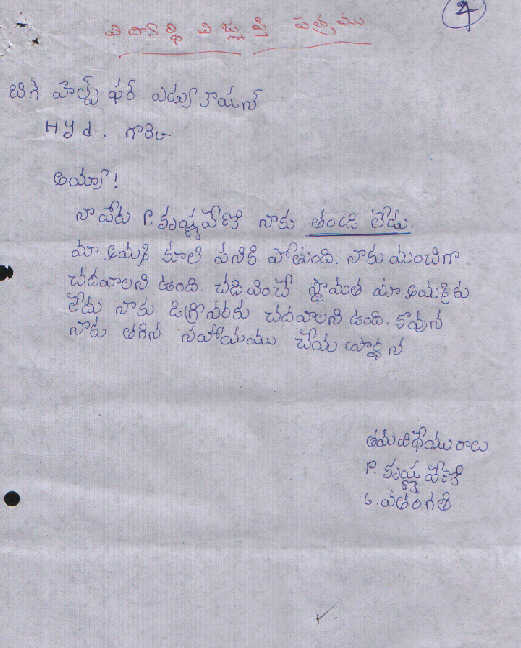 2
విద్యార్థి విజ్ఞప్తి పత్రము
టిగే హెల్ప్ ఫర్ ఎడ్యుకాషన్
Hyd. గారికి
అయ్యా!
నా పేరు P. కృష్ణవేణి నాకు తండ్రి లేడు
మా అమ్మకి కూలి పనికి పోతుంది. నాకు మంచిగా
చదవాలని ఉంది. చదివించే స్తొమత మా అమ్మకు
లేదు నాకు డిగ్రీవరకు చదవాలని ఉంది. కావున
నాకు తగిన సహాయము చేయ ప్రార్థన
తమ విధేయురాలు
P. కృష్ణవేణి
6.వ తరగతి